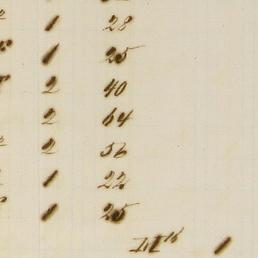 1 28
1 25
2 40
2 64
2 56
1 22
1 25
1